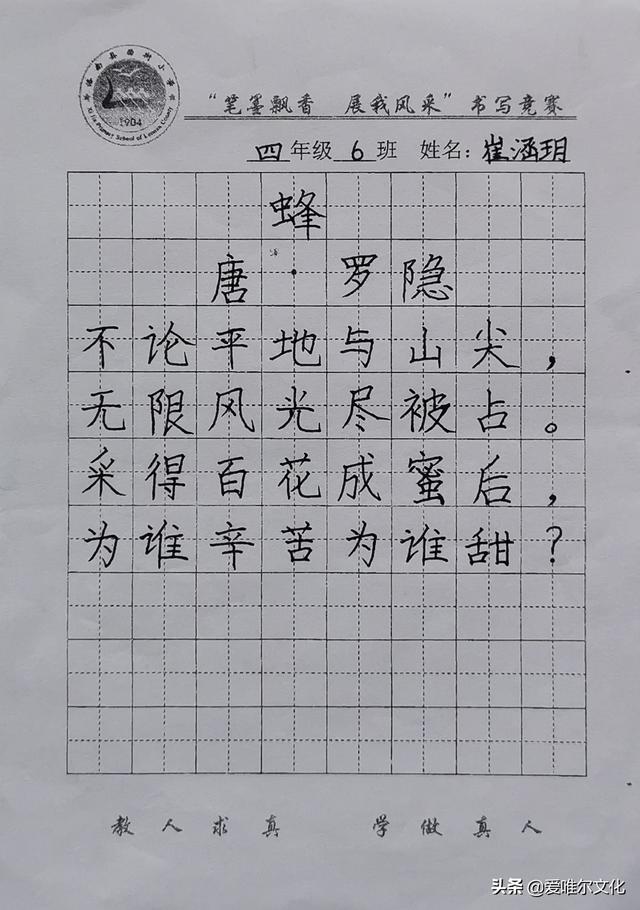 1904
“笔墨飘香 展我风采”书写竞赛
四年级6班 姓名:崔涵玥
蜂
唐·罗隐
不论平地与山尖,
无限风光尽被占。
采得百花成蜜后,
为谁辛苦为谁甜?
教人求真 学做真人
头条 @爱唯尔文化